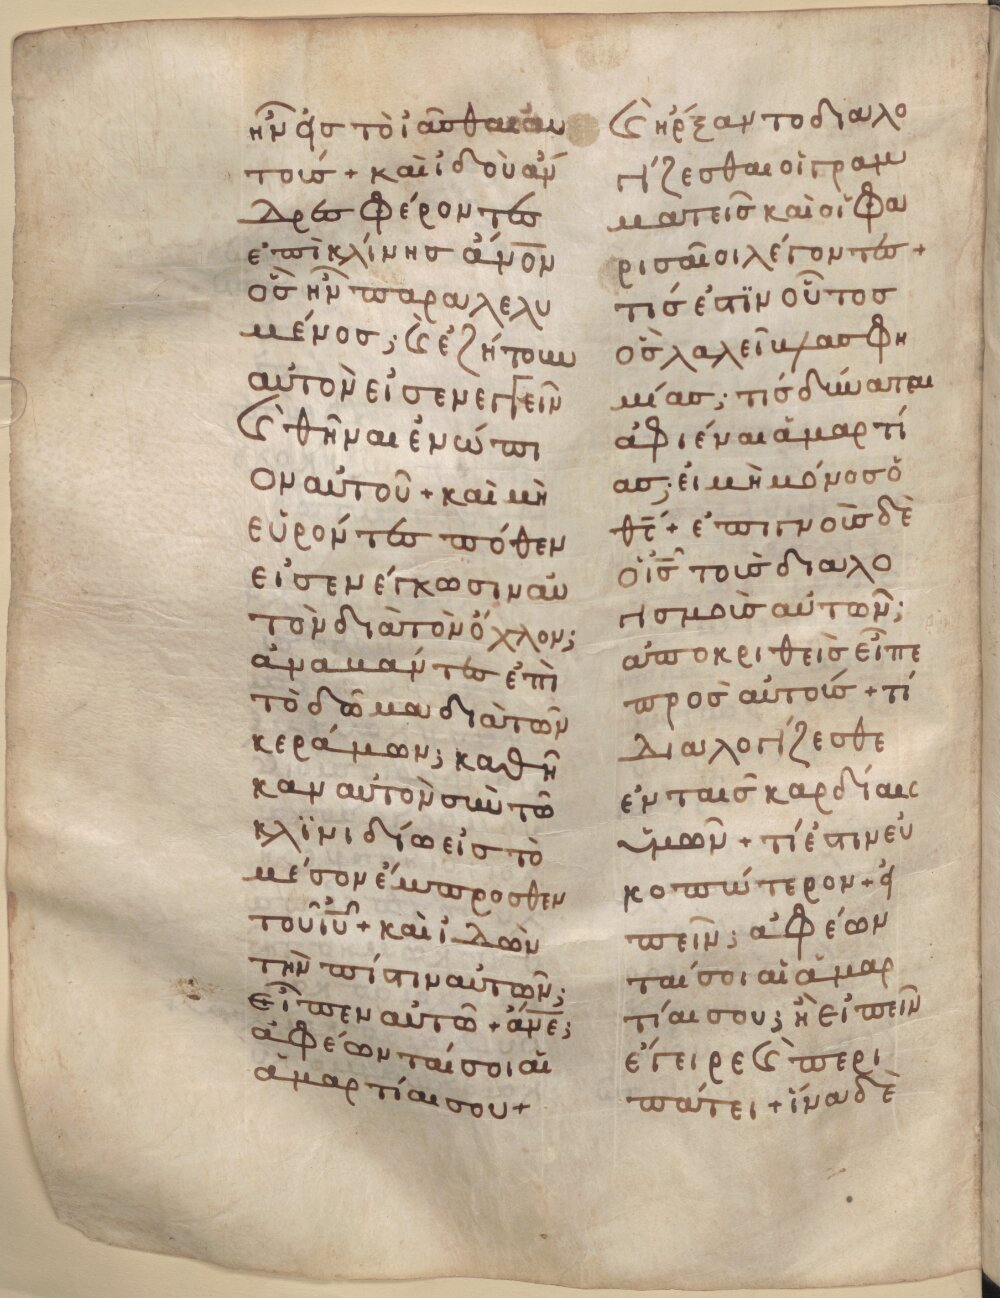 ἦν εἰς τὸ ἰᾶσθαι αὐ
τούς + καὶ ἰδοὺ ἄν
δρες φέροντες
ἐπὶ κλίνης ἄνον
ὃς ἦν παραλελυ
μένος; καὶ ἐζήτουν
αὐτὸν εἰσενεγκεῖν
καὶ θῆναι ἐνώπι
ον αὐτοῦ + καὶ μὴ
εὑρόντες πόθεν
εἰσενέγκωσιν αὐ
τὸν διὰ τὸν ὄχλον;
ἀναβάντες ἐπὶ
τὸ δῶμα διὰ τῶν
κεράμων; καθῆ
καν αὐτὸν σὺν τῶ
κλινιδίω εἰς τὸ
μέσον ἔμπροσθεν
τοῦ ἰῦ + καὶ ἰδὼν
τὴν πίστιν αὐτῶν;
εἶπεν αὐτῶ + ἄνε;
ἀφέωνταί σοι αἱ
ἁμαρτίαι σου +
καὶ ἤρξαντο διαλο
γίζεσθαι οἱ γραμ
ματεῖς καὶ οἱ φα
ρισαῖοι λέγοντες +
τίς ἐστιν οὗτος
ὃς λαλεῖ βλασφη
μίας; τίς δύναται
ἀφιέναι ἁμαρτί
ας; εἰ μὴ μόνος ὁ
θς + ἐπιγνοὺς δὲ
ὁ ις τοὺς διαλο
γισμοὺς αὐτῶν;
ἀποκριθεὶς εἶπε
πρὸς αὐτούς + τί
διαλογίζεσθε
ἐν ταῖς καρδίαις
ὑμῶν + τί ἐστιν εὐ
κοπώτερον + εἰ
πεῖν; ἀφέων
ταί σοι αἱ ἁμαρ
τίαι σου; ἢ εἰπεῖν
ἔγειρε καὶ περι
πάτει + ἵνα δὲ